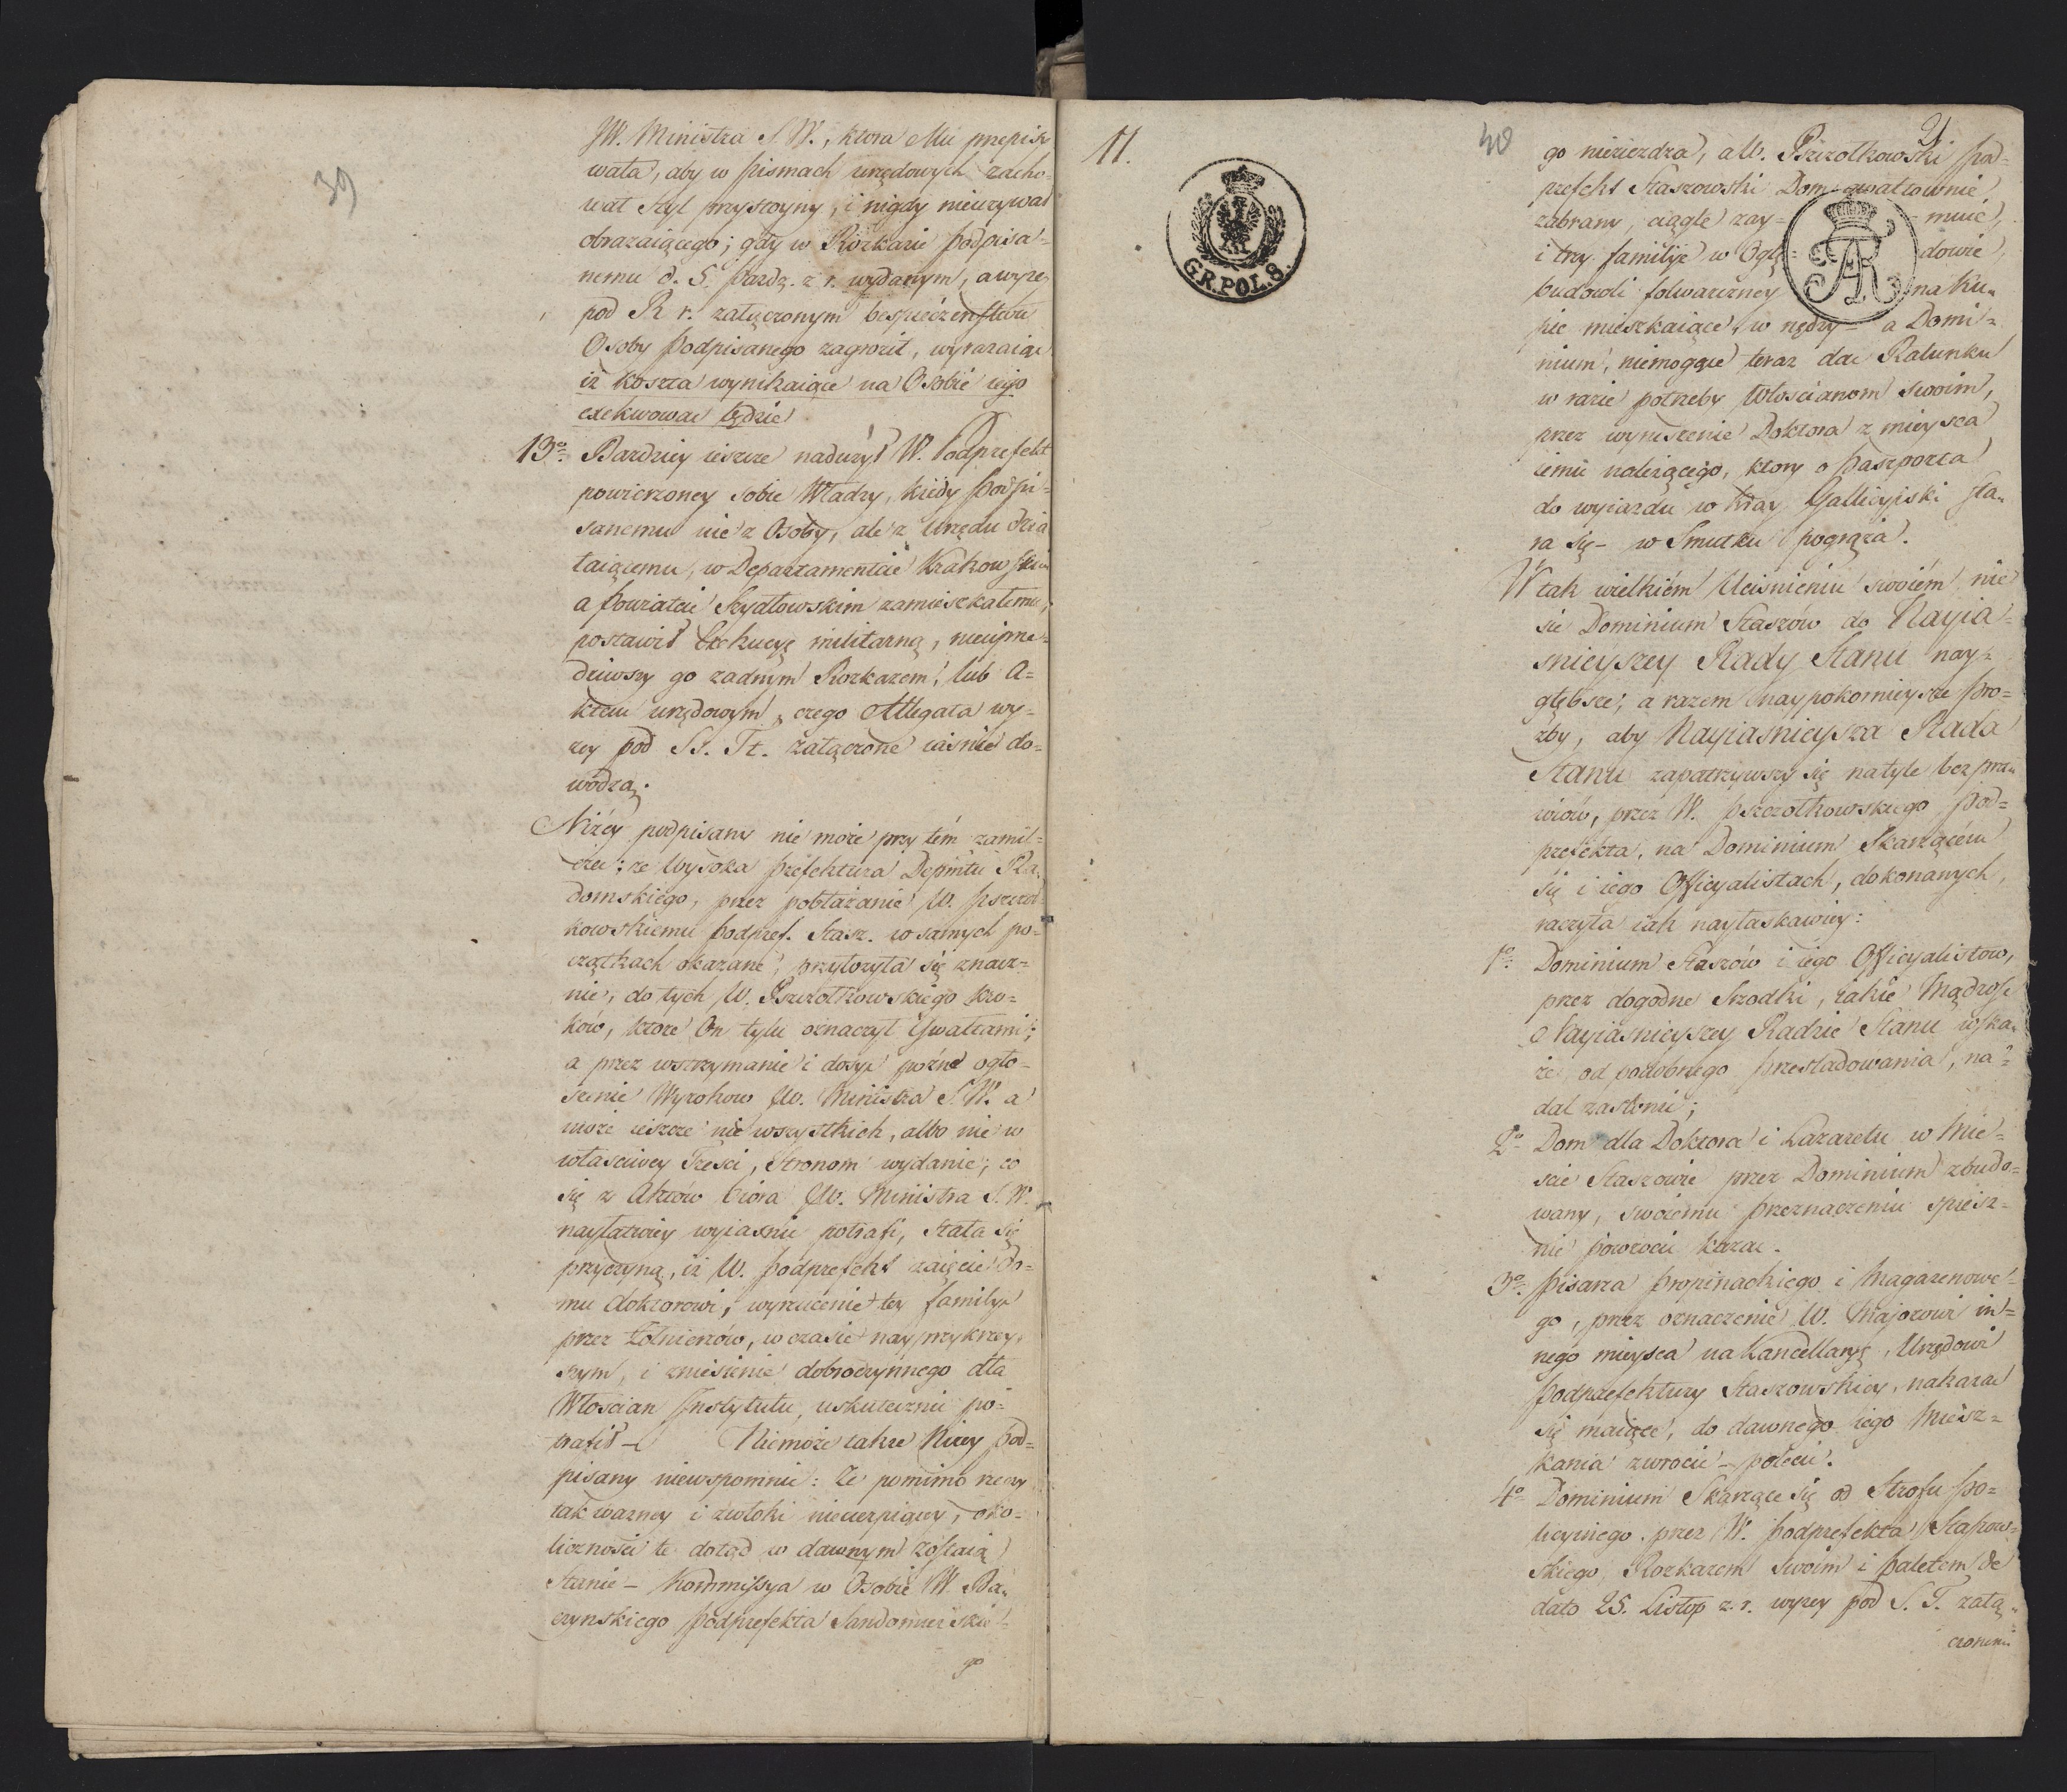 39
JW. Ministra S. W., ktora Mu przepisy
wała, aby w pismach urzędowych zacho=
wał Styl przystoyny, i nigdy nieużywał
obrażaiącego; gdy w Rozkazie podpisa=
nemu d. 5. Pazdz. z. r. wydanym, a wyżey
pod R r. załączonym bespieczenstwu
Osoby Podpisanego zagroził, wyrażaiąc
iż koszta wynikaiące na Osobie iego
exekwować będzie
13o. Bardziey ieszcze nadużył W. Podprefekt
powierzoney sobie Władzy, kiedy Podpi=
sanemu nie z Osoby, ale z Urzędu dzia
łaiącemu, w Departamencie Krakowskim
a Powiatcie Szydłowskim zamieszkałemu,
postawił Exekucyę militarną, nieuprze=
dziwszy go żadnym Rozkazem, lub A=
ktem urzędowym, czego Allegata wy=
żey pod Ss. Tt. załączone iaśnie do=
wodzą.
Niżéy podpisany nie może przy tém zamil=
czeć: że Wysoka Prefektura Depmtu Ra=
domskiego, przez pobłażanie W. Pszczoł
kowskiemu Podpref. Stasz. w samych po=
czątkach okazane, przyłożyła się znacz=
nie, do tych W. Pszczołkowskiego Kro=
ków, ktore On tylu oznaczył Gwałtami;
a przez wstrzymanie i dosyć późne ogło=
szenie Wyrokow JW. Ministra S. W. a
może ieszcze nie wszystkich, albo nie w
właściwey Treści, Stronom wydanie; co
się z Aktów Biora JW. Ministra S. W.
nayłatwiey wyiaśnić potrafi, Stała się
przyczyną, iż W. Podprefekt zaięcie Do=
mu doktorowi, wyrzucenie tey familyi
przez Żołnierzów, w czasie nayprzykrzey
szym, i zniesienie dobroczynnego dla
Włoscian Instytutu, uskutecznić po=
trafił – Niemoże także Niżey Pod=
pisany niewspomnieć: Że pomimo rzeczy
tak ważney i zwłoki niecierpiącey, oko=
liczności te dotąd w dawnym zostaią
Stanie – Kommissya w Osobie W. Ba=
czynskiego Podprefekta Sandomierskie=
go
11.
G.R.POL.8.
40
go niezieżdża, a W. Pszczołkowski Pod=
prefekt Staszowski Dom gwałtownie
zabrany, ciągle zay= muie,
i trzy familije w Ogło= dowie,
budowli folwarczney na Ku=
pie mieszkaiące, w nędzy – a Domi=
nium, niemogące teraz dać Ratunku
w razie potrzeby Włoscianom swoim,
przez wyruszenie Doktora z mieysca
iemu należącego, ktory o Paszport
do wyiazdu w Kray Gallicyiski sta=
ra się – w Smutku pogrąża.
W tak wielkiém Uciśnieniu swoiém nie
sie Dominium Staszów do Nayia=
śnieyszey Rady Stanu nay=
głębsze; a razem naypokornieysze Pro=
żby, aby Nayiaśnieysza Rada
Stanu zapatrzywszy się na tyle bezpra=
wiów, przez W. Pszczołkowskiego Pod=
prefekta, na Dominium Skarżącém
się i iego Officyalistach, dokonanych,
raczyła iak nayłaskawiey:
1o. Dominium Staszów i iego Officyalistow,
przez dogodne Srzodki, iakie Mądrość
Nayiaśnieyszey Radzie Stanu wska=
że, od podobnego prześladowania, na=
dal zasłonić;
2o. Dom dla Doktora i Lazaretu w Mie=
scie Staszowie przez Dominium zbudo=
wany, swoiemu przeznaczeniu spiesz=
nie powrócić kazać.
3o. Pisarza Propinackiego i Magazenowe=
go, przez oznaczenie W. Majorowi in=
nego mieysca na Kancellaryę, Urzędowi
Podprefektury Staszowskiey, nakazać
się maiące, do dawnego iego Miesz=
kania zwrocić – polecić.
4o. Dominium Skarżące się od Strofu Po=
licyinego przez W. Podprefekta Staszow=
skiego, Rozkazem swoim i Paletem de
dato 25. Listop z. r. wyżey pod S. T. załą=
czonemi